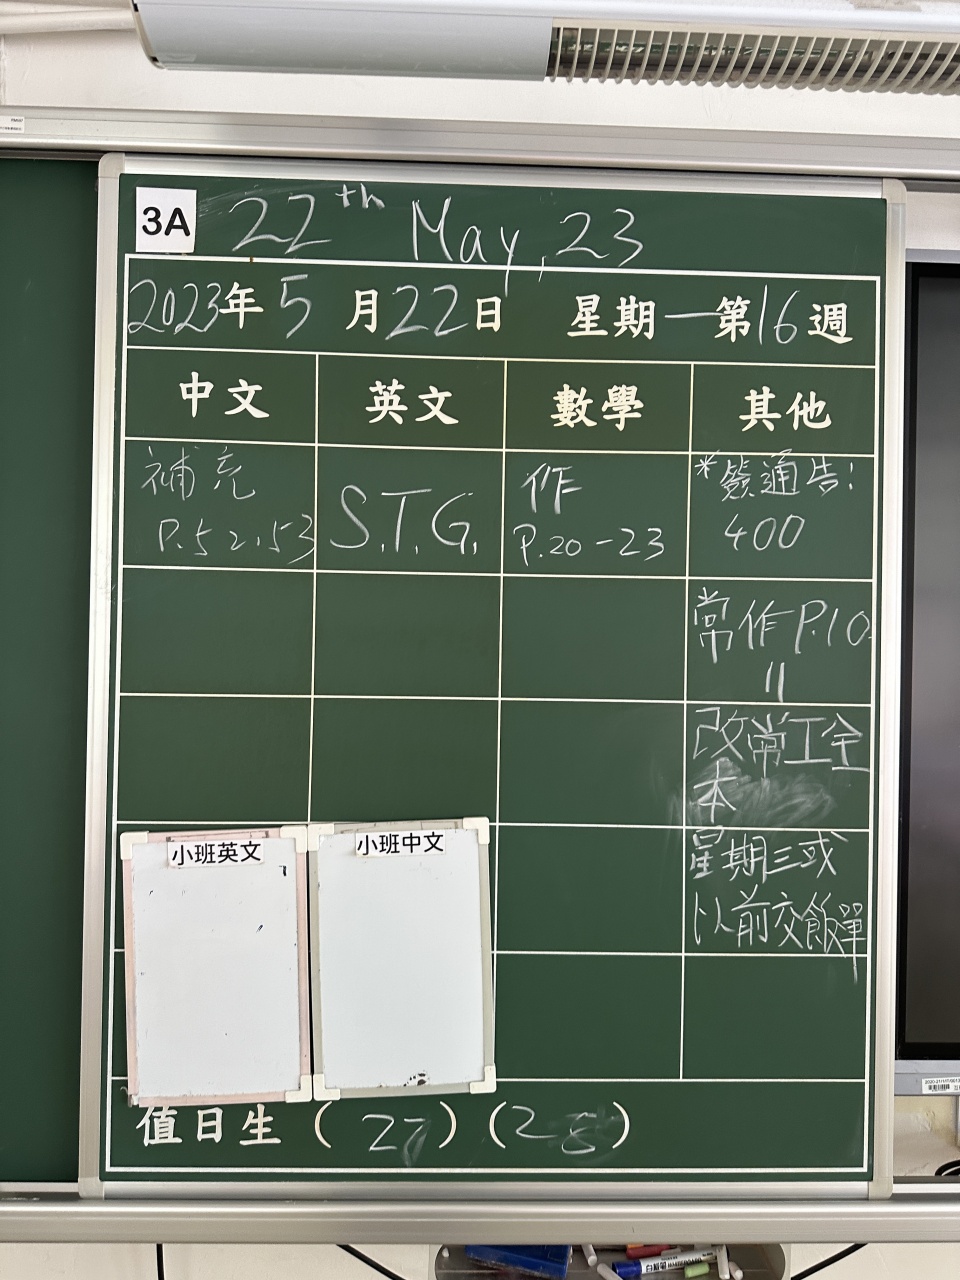 3A 22th May, 23
2023年5月22日 星期一第16週
中文 英文 數學 其他
補充
P.52.53
S.T.G.
作
P.20-23
*簽通告:
400
常作P.10
11
改常工全
本
星期三或
以前交飯單
小班英文
小班中文
值日生 (27) (28)